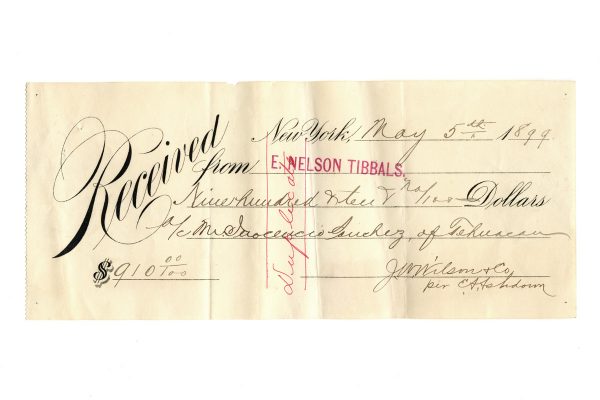 Received
New York, May 5th 1899
from E. NELSON TIBBALS.
Nine hundred & ten & no/100 Dollars
a/c Mr Inocencio Sanchez, of Tehuacan
$910 00/100
J W Wilson & Co,
per C.A. Ashdown
Duplicate